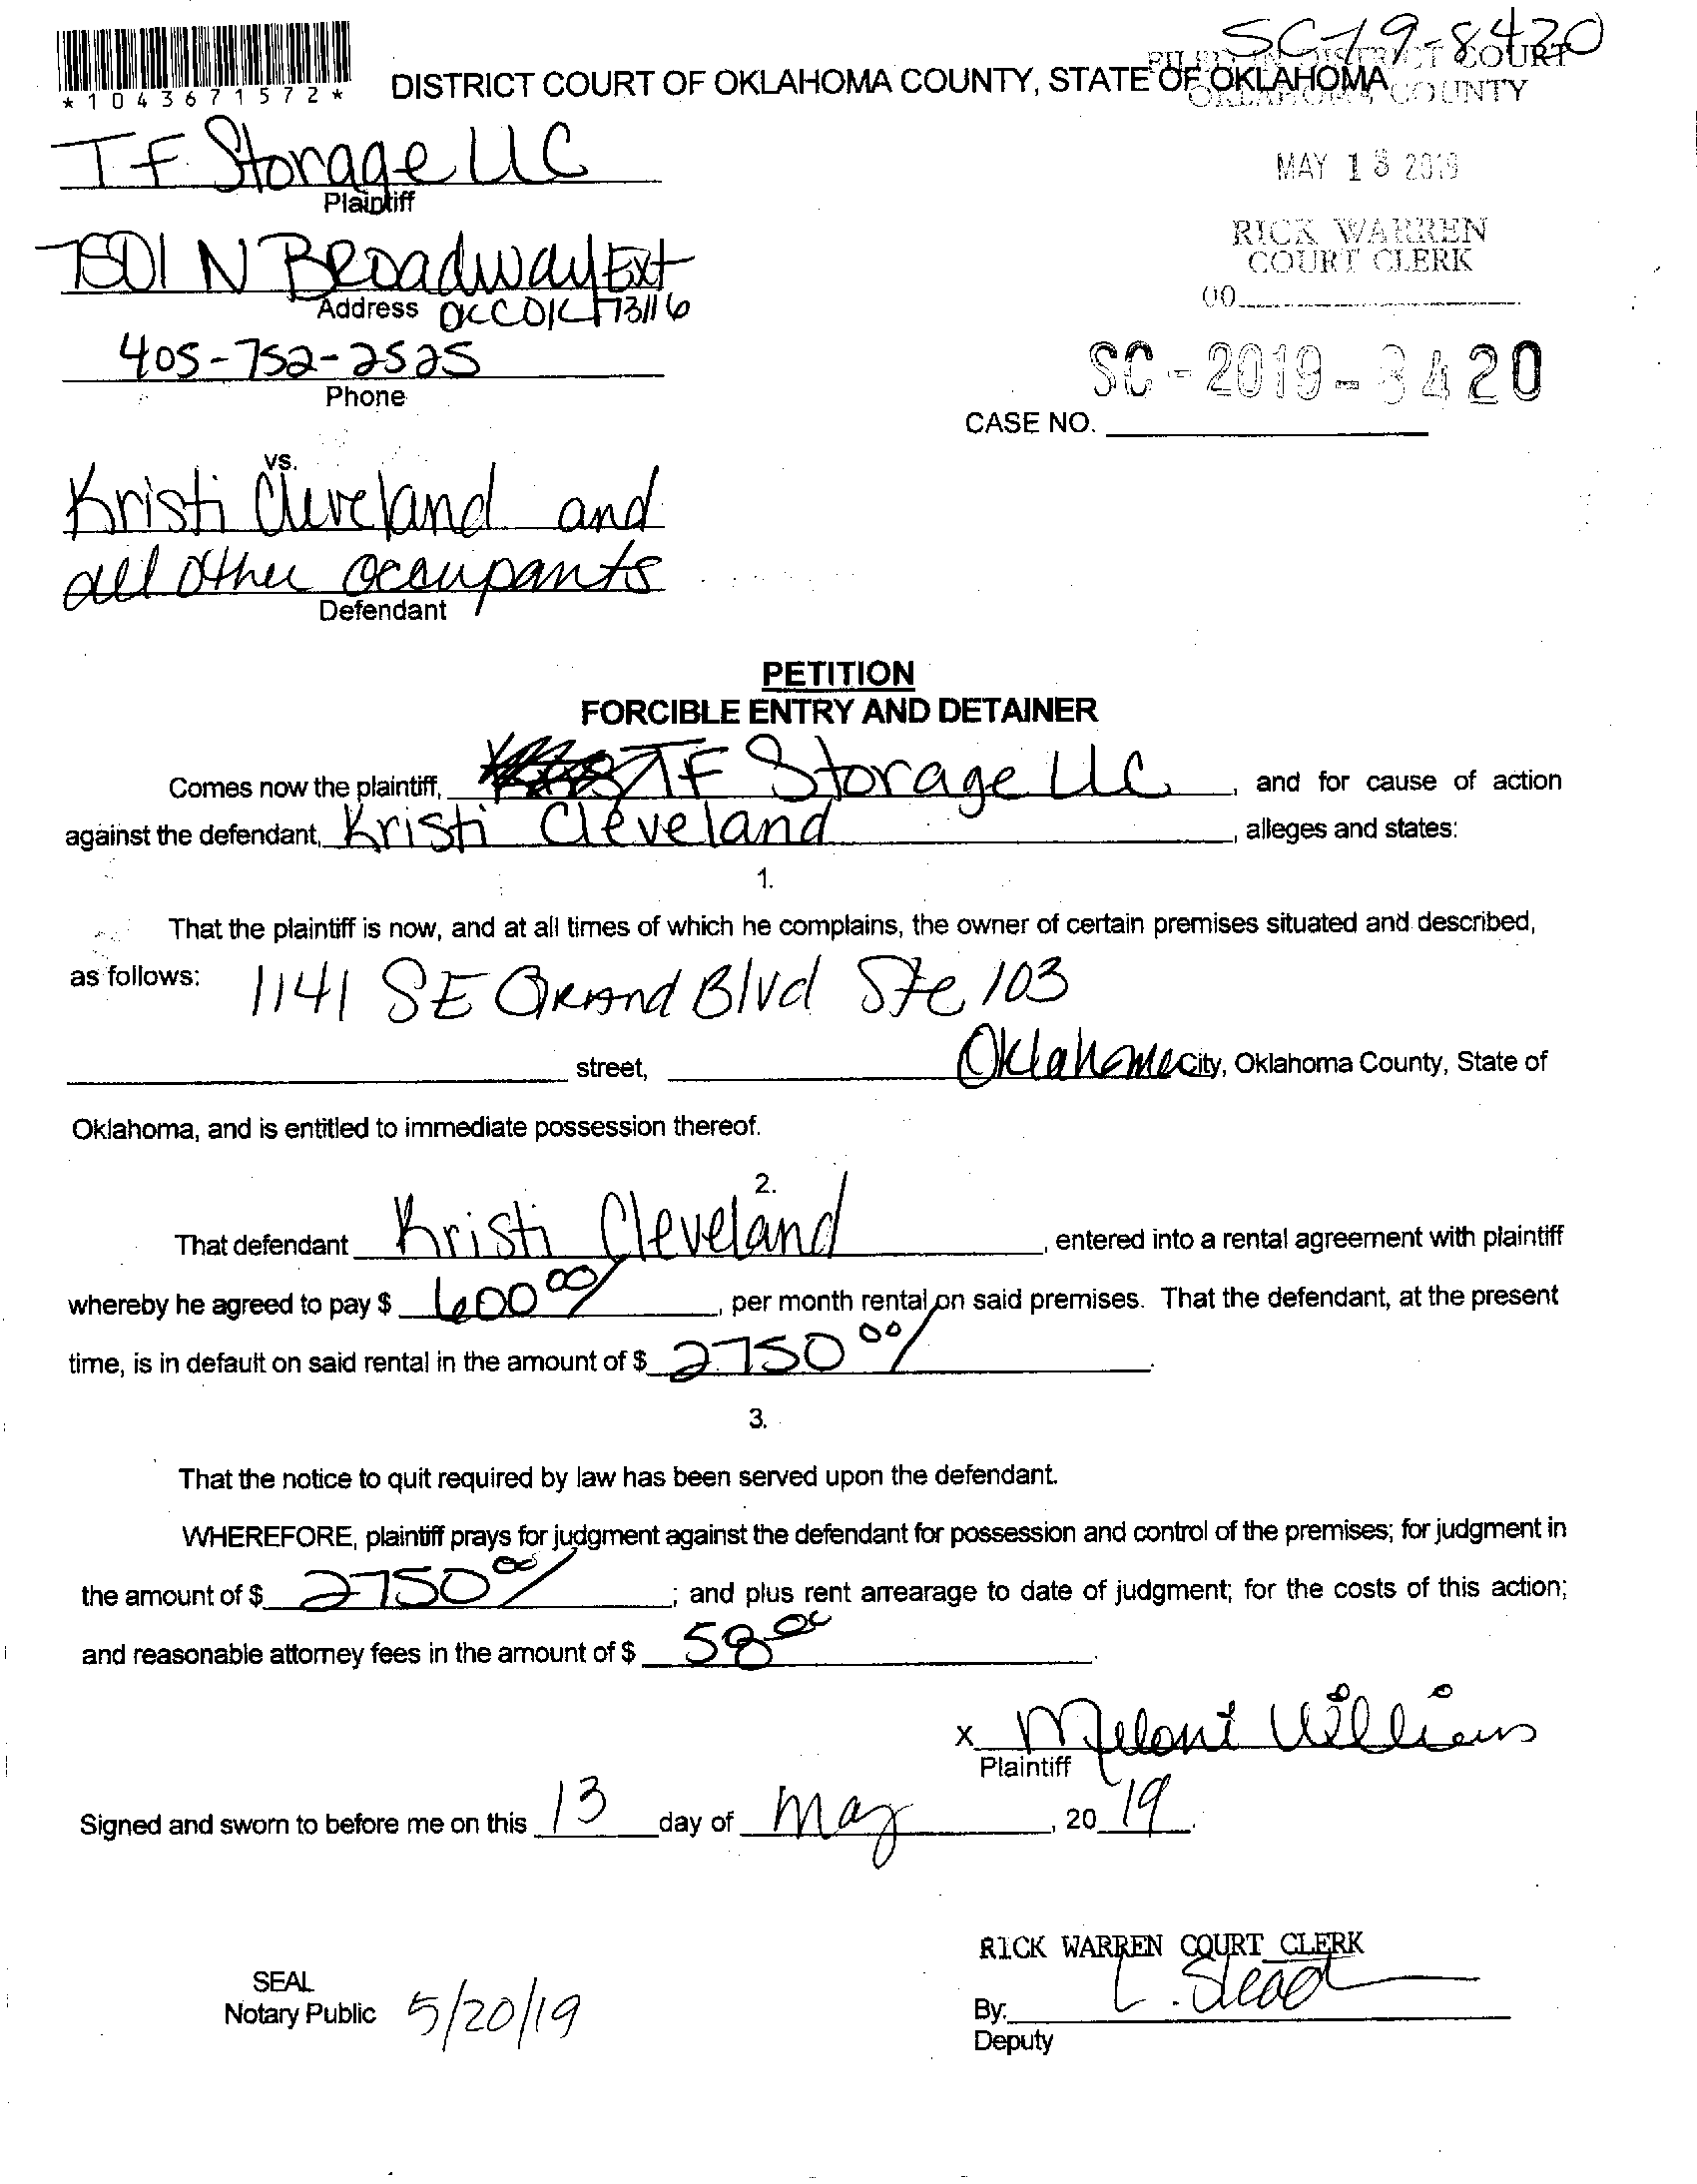 SC-19-8420
FILED IN DISTRICT COURT
*1043671572*
DISTRICT COURT OF OKLAHOMA COUNTY, STATE OF OKLAHOMA
OKLAHOMA COUNTY
TF Storage LLC
Plaintiff
MAY 13 2019
RICK WARREN
COURT CLERK
7501 N Broadway Ext
Address OKC OK 73116
405-752-2525
Phone
SC-2019-8420
CASE NO.
vs.
Kristi Cleveland and
all other occupants
Defendant
PETITION
FORCIBLE ENTRY AND DETAINER
Comes now the plaintiff, TF Storage LLC, and for cause of action
against the defendant, Kristi Cleveland, alleges and states:
1.
That the plaintiff is now, and at all times of which he complains, the owner of certain premises situated and described,
as follows: 1141 SE Grand Blvd Ste 103
street, Oklahoma City, Oklahoma County, State of
Oklahoma, and is entitled to immediate possession thereof.
2.
That defendant Kristi Cleveland, entered into a rental agreement with plaintiff
whereby he agreed to pay $ 600 00/, per month rental on said premises. That the defendant, at the present
time, is in default on said rental in the amount of $ 2750 00/.
3.
That the notice to quit required by law has been served upon the defendant.
WHEREFORE, plaintiff prays for judgment against the defendant for possession and control of the premises; for judgment in
the amount of $ 2750 00/; and plus rent arrearage to date of judgment; for the costs of this action;
and reasonable attorney fees in the amount of $ 58.00.
x Meloni Williams
Plaintiff
Signed and sworn to before me on this 13 day of May, 2019.
RICK WARREN COURT CLERK
SEAL
Notary Public 5/20/19
By: L. Slead
Deputy